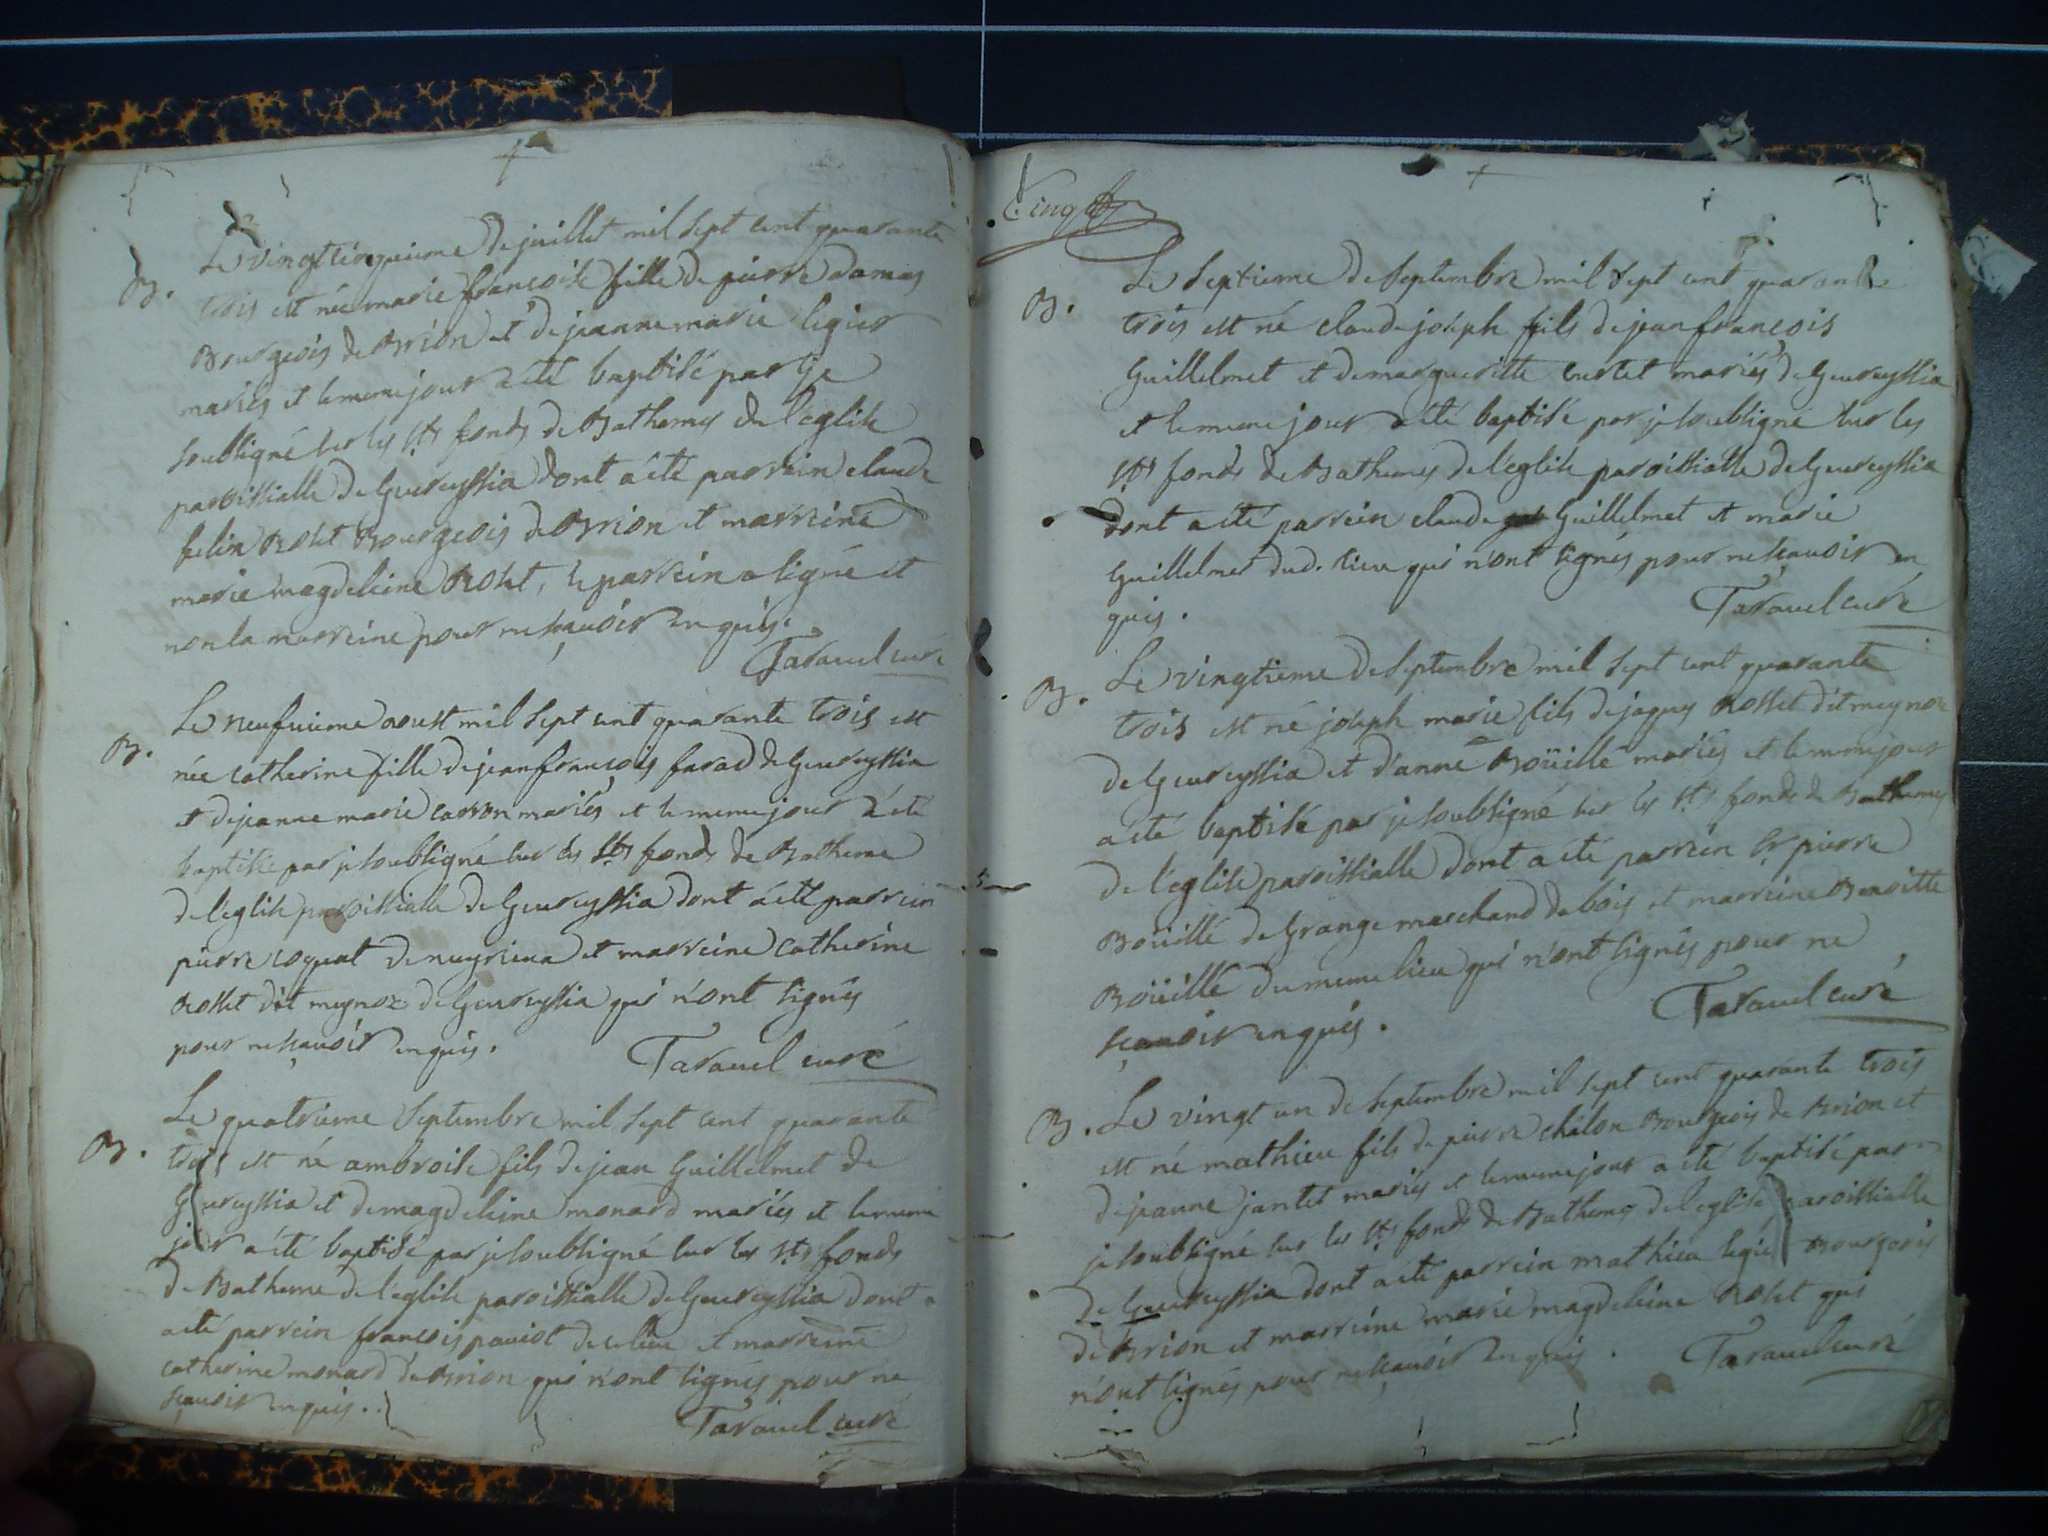 B. Le vingt cinquieme de juillet mil sept cent quarante
trois est née marie francoise fille de pierre damas
Bourgeois de Brion et de jeanne marie ligier
mariés et le meme jour a été baptisé par je
soubsigné sur les sts fonds de Bathemes de l'eglise
paroissialle de Geureyssia dont a été parrein claude
felin Rolet Bourgeois de Brion et marreine
marie magdeleine Rolet, le parrein a signé et
non la marreine pour ne sçavoir enquis.
Taravel curé
B. Le neufvieme aoust mil sept cent quarante trois est
née catherine fille de jean françois farad de Geureyssia
et de jeanne marie carron mariés et le meme jour a été
baptisée par je soubsigné sur les sts fonds de Batheme
de l'eglise paroissialle de Geureyssia dont a été parrein
pierre coquat de neyriena et marreine catherine
Rosset dit meynoz de Geureyssia qui n'ont signés
pour ne sçavoir enquis.
Taravel curé
B. Le quatrieme Septembre mil sept cent quarante
trois est né ambroise fils de jean Guillelmet de
Geureyssia et de magdeleine monard mariés et le meme
jour a été baptisé par je soubsigné sur les sts fonds
de Batheme de l'eglise paroissialle de Geureyssia dont
a été parrein francois paviot de ce lieu et marreine
catherine monard de Brion qui n'ont signés pour ne
sçavoir enquis.
Taravel curé
B. Le Septieme de Septembre mil sept cent quarante
trois est né claude joseph fils de jean francois
Guillelmet et de margueritte curtet mariés de Geureyssia
et le meme jour a été baptisé par je soubsigné sur les
sts fonds de Bathemes de l'eglise paroissialle de Geureyssia
dont a été parrein claude Guillelmet et marie
Guillelmet dud. lieu qui n'ont signés pour ne sçavoir en
quis.
Taravel curé
B. Le vingtieme de Septembre mil sept cent quarante
trois est né joseph marie fils de jaques Rosset dit meynoz
de Geureyssia et d'anne Boüillé mariés et le meme jour
a été baptisé par je soubsigné sur les sts fonds de Bathemes
de l'eglise paroissialle dont a été parrein Sr pierre
Boüillé de Grange marchand de bois et marreine Benoitte
Boüillé du meme lieu qui n'ont signés pour ne
sçavoir enquis.
Taravel curé
B. Le vingt un de Septembre mil sept cent quarante trois
est né mathieu fils de pierre chilon Bourgeois de Brion et
de jeanne jantet mariés et le meme jour a été baptisé par
je soubsigné sur les sts fonds de Bathemes de l'eglise paroissialle
de Geureyssia dont a été parrein mathieu legié Bourgeois
de Brion et marreine marie magdeleine Rolet qui
n'ont signés pour ne sçavoir enquis.
Taravel curé